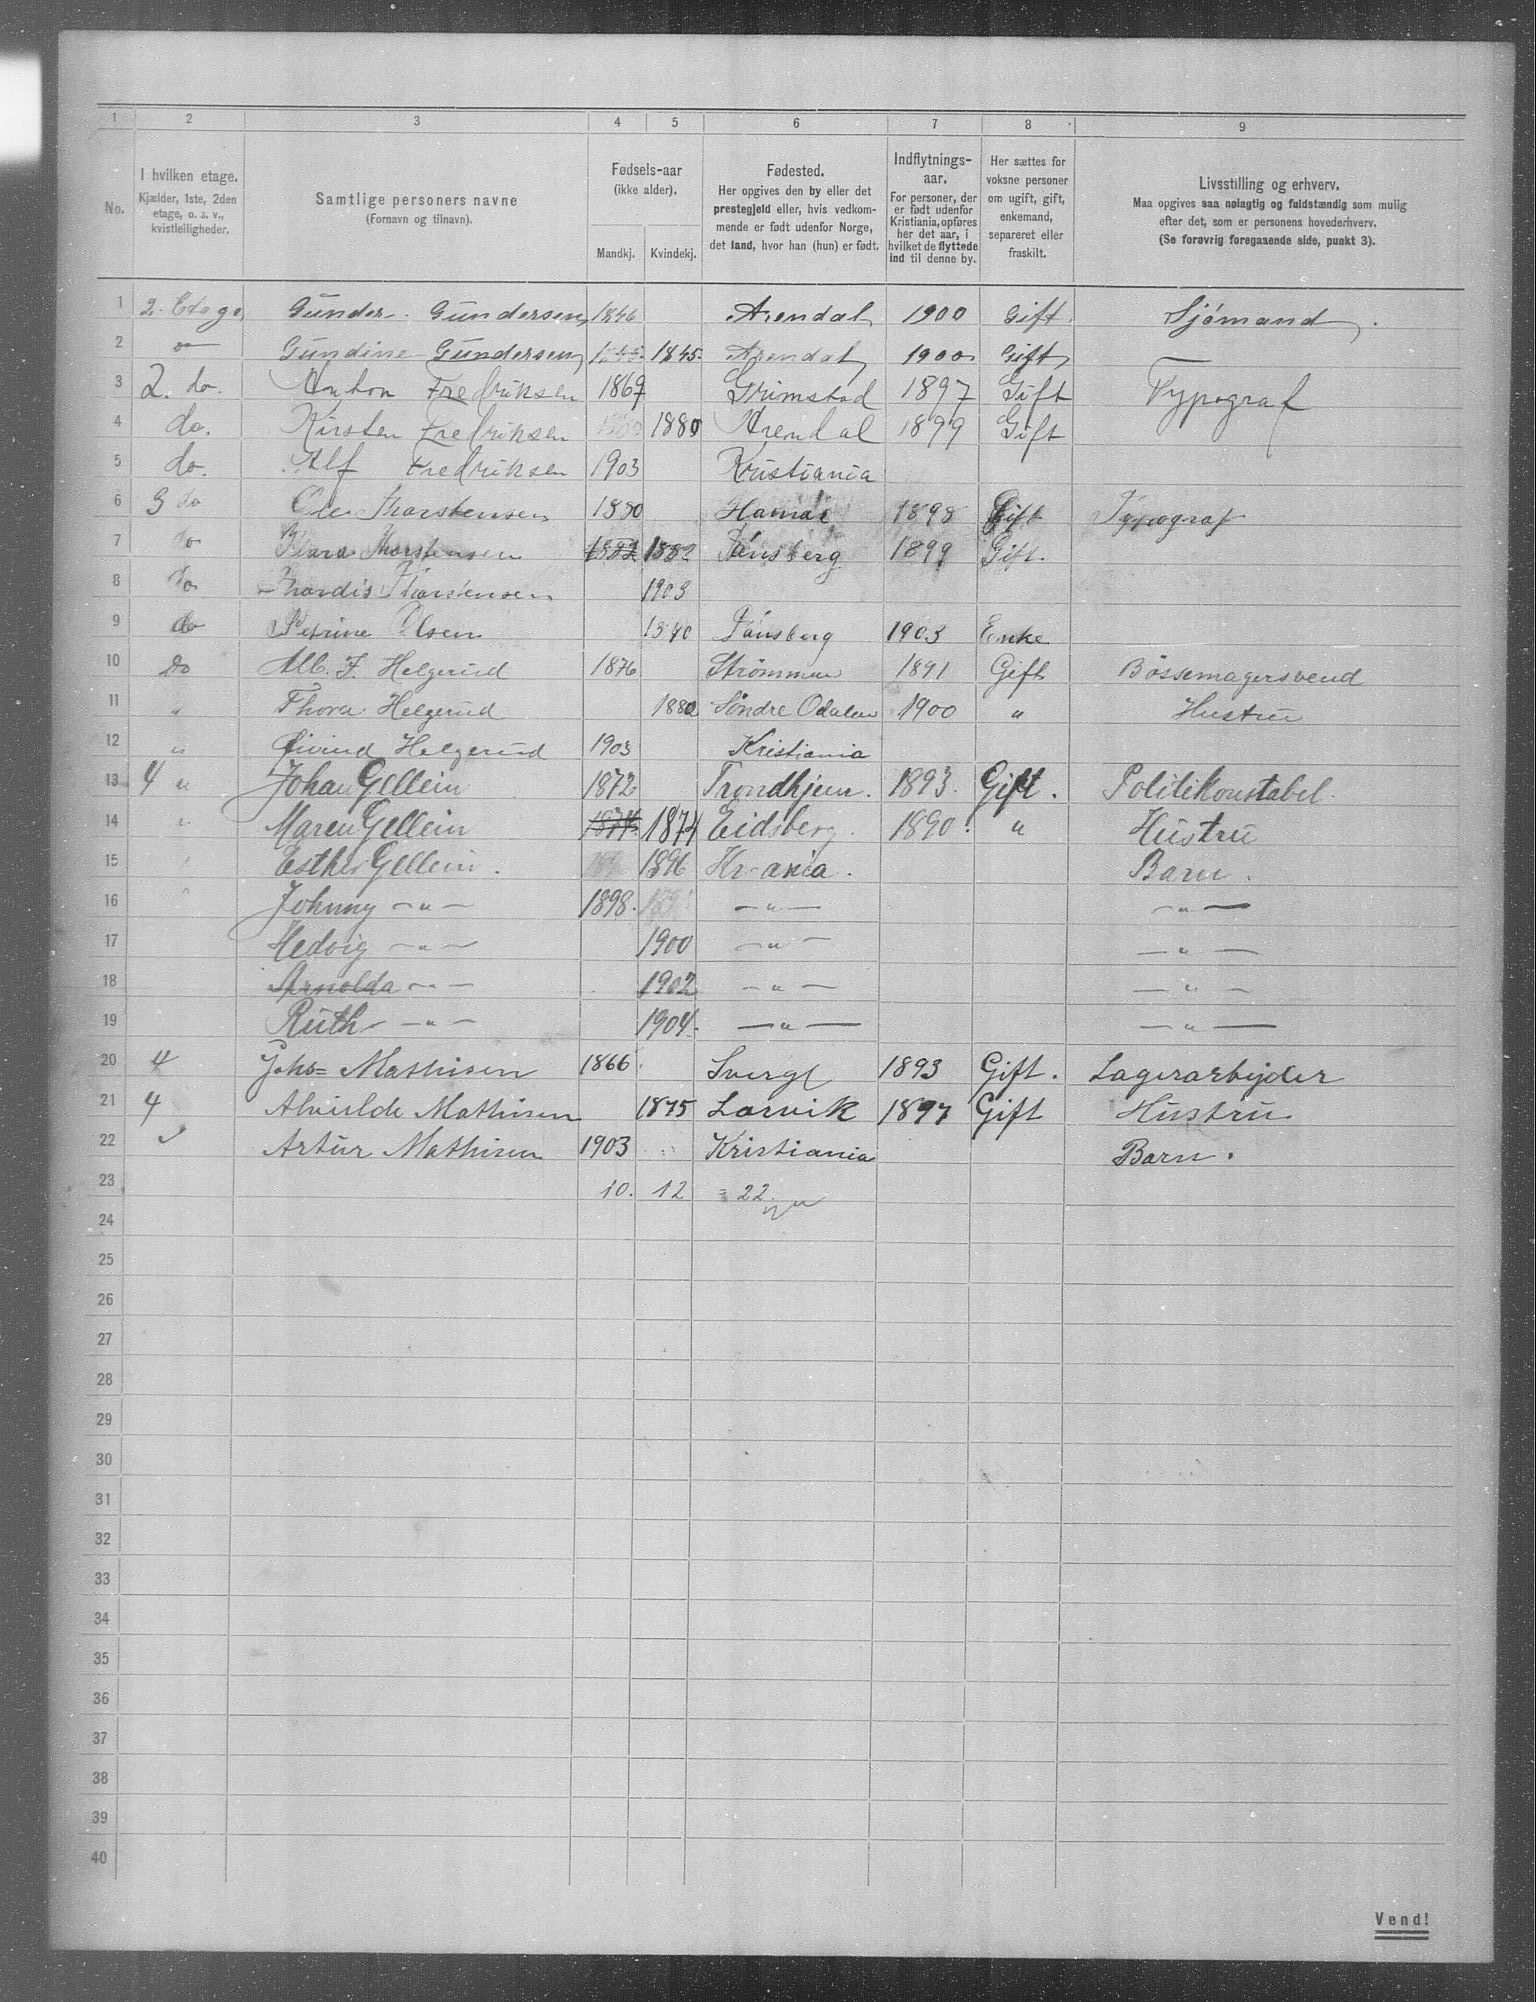 1 2 3 4 5 6 7 8 9
No.
I hvilken etage.
Kjælder, 1ste, 2den
etage, o. s. v.,
kvistleiligheder.
Samtlige personers navne
(Fornavn og tilnavn).
Fødsels-aar
(ikke alder).
Mandkj. Kvindekj.
Fødested.
Her opgives den by eller det
prestegjeld eller, hvis vedkom-
mende er født udenfor Norge,
det land, hvor han (hun) er født.
Indflytnings-
aar.
For personer, der
er født udenfor
Kristiania, opføres
her det aar, i
hvilket de flyttede
ind til denne by.
Her sættes for
voksne personer
om ugift, gift,
enkemand,
separeret eller
fraskilt.
Livsstilling og erhverv.
Maa opgives saa nøiagtig og fuldstændig som muiig
efter det, som er personens hovederhverv.
(Se forøvrig foregaaende side, punkt 3).
1 2. Etage Gunder Gundersen 1846 Arendal 1900 Gift. Sjómand.
2 Gundine Gundersen 1845. Arendal 1900 Gift
3 2. do. Anton Fredriksen 1869 Grimstad 1897 Gift Typograf
4 do. Kirsten Fredriksen 1880 Arendal 1899 Gift
5 do. Alf Fredriksen 1903 Kristiania
6 3 do Ole Thorstensen 1880 Hamar 1898 Gift Typograf
7 do Klara Thorstensen 1882 1882 Tónsberg 1899 Gift.
8 do Thordis Thorstensen 1903
9 do Petrine Olsen 1840 Tónsberg 1903 Enke
10 Do Alb. F. Helgerud 1876 Strømmen 1891 Gift Bössemagersvend
11 " Thora Helgerud 1880 Söndre Odalen 1900 " Hustru
12 " Eivind Helgerud 1903 Kristiania
13 4 " Johan Gellein 1872 Trondhjem. 1893. Gift. Politikonstabel.
14 " Maren Gellein 1874 1874 Eidsberg. 1890. " Hustru
15 Esther Gellein. 1896 Kr-ania. Barn.
16 Johnny -"- 1898. -"- -"-
17 Hedvig -"- 1900 -"- -"-
18 Arnolda -"- 1902 -"- -"-
19 Ruth -"- 1904. -"- -"-
20 4 Johs= Mathisen 1866 Sverge 1893 Gift. Lagerarbejder
21 4 Alvilde Mathisen 1875 Larvik 1897 Gift Hustru
22 Artur Mathisen 1903 Kristiania Barn.
23 10. 12 = 22.
24
25
26
27
28
29
30
31
32
33
34
35
36
37
38
39
40
Vend!